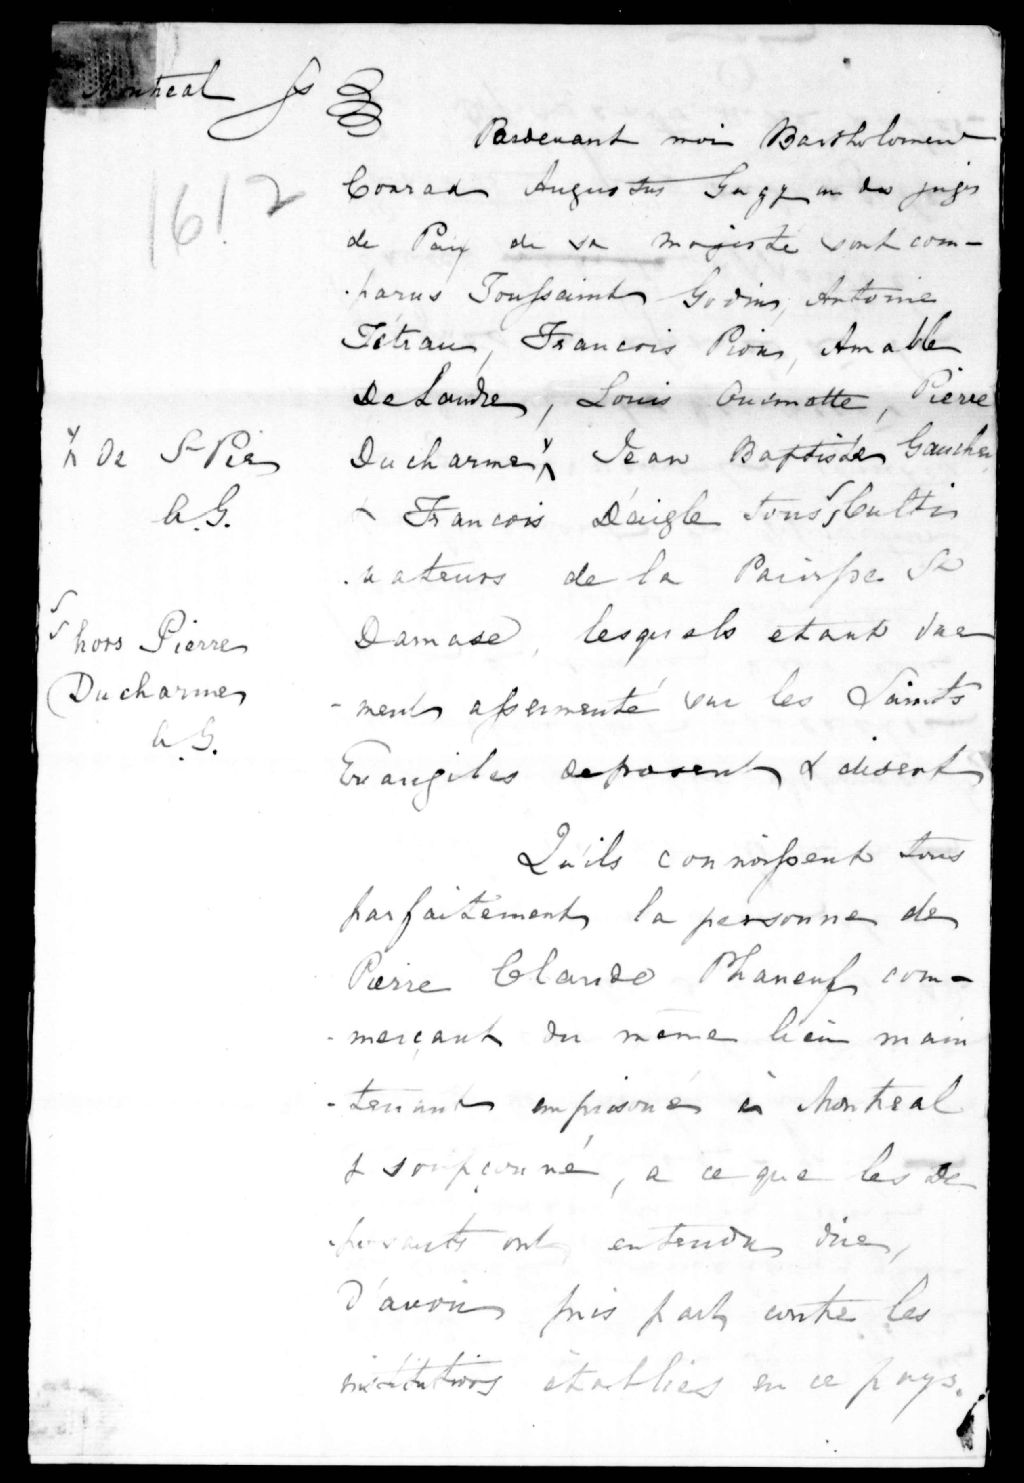 Montreal Js
1612
Pardevant moi Bartholomew
Conrad Augustus Gugy un des juges
de Paix de sa majesté sont com-
-parus Toussaint Godin, Antoine
Tétrau, Francois Pion, Amable
DeLandre, Louis Guimotte, Pierre
Ducharme, Jean Baptiste Gaucher
& Francois Daigle tous Culti
-vateurs de la Paroisse St
Damase, lesquels etant due
-ment assermenté sur les Saints
Evangiles deposent & disent
Qu'ils connoissent tous
parfaitement la personne de
Pierre Claude Phaneuf com-
-merçant du même lieu main
-tenant emprisoné à Montreal
& soupçonné, a ce que les de
-posants ont entendu dire,
d'avoir pris part contre les
institutions établies en ce pays.
de St Pie
A.G.
hors Pierre
Ducharme
A.G.